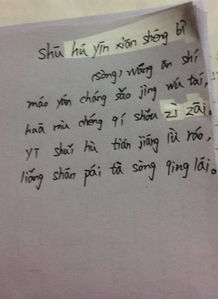 shū hú yīn xiān shēng bì
(sòng) wáng ān shí
máo yán cháng sǎo jìng wú tái,
huā mù chéng qí shǒu zì zāi.
yī shuǐ hù tián jiāng lǜ rào,
liǎng shān pái tà sòng qing lái.